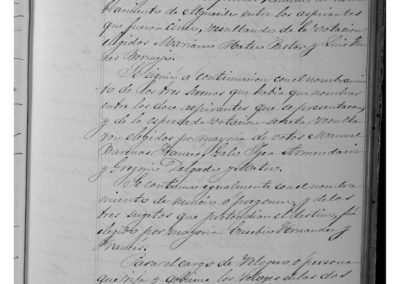 bramiento de Alguacil entre los aspirantes
que fueron cinco, resultando de la votacion
elegidos Mariano Mateo Pastor y Luis
Bermejo.
Se siguió a continuacion con el nombrami
to de los tres serenos que había que nombrar
entre los doce aspirantes que se presentaron
y de la espresada votacion secreta resulta
ron elegidos por mayoria de votos Manuel
Francés, Galo Armendariz
y Gregorio Delgado y Mateo.
Se continuó igualmente con el nombra
miento de nuncio o pregonero y de los
tres sugetos que pretendian el destino, fué
elegido por mayoria Eusebio Hernandez y
Francés.
Para el cargo de Relojero o persona
que rija y gobierne los relojes de las dos